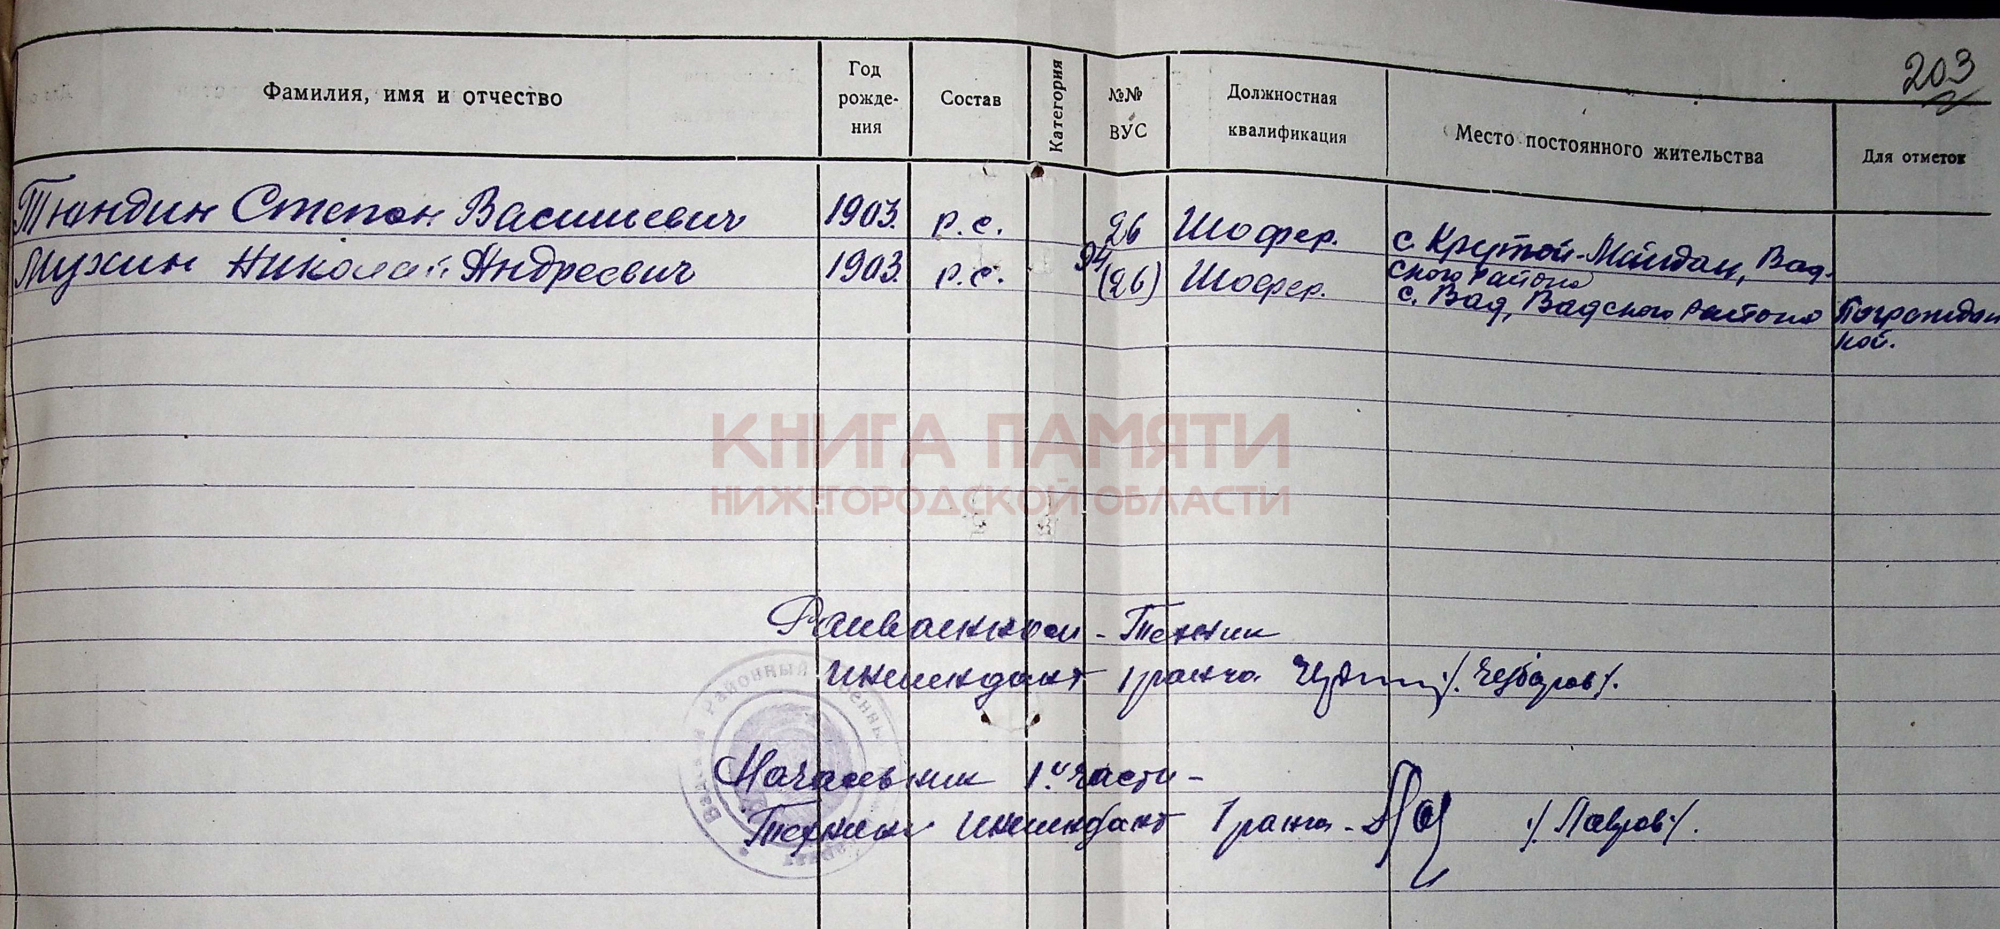 203
Фамилия, имя и отчество
Год рожде- ния
Состав
Категория
№№ ВУС
Должностная квалификация
Место постоянного жительства
Для отметок
Тюндин Степан Васильевич 1903. р.с. 26 Шофер. с. Крутой-Майдан, Вад-
ского района
Мухин Николай Андреевич 1903. р.с. 94 (26) Шофер. с. Вад, Вадского района
кой.
КНИГА ПАМЯТИ
НИЖЕГОРОДСКОЙ ОБЛАСТИ
Райвоенком - Техник
интендант 1 ранга /. Чубаров /.
Начальник 1й части -
Техник интендант 1 ранга - /. Лавров /.
Районный